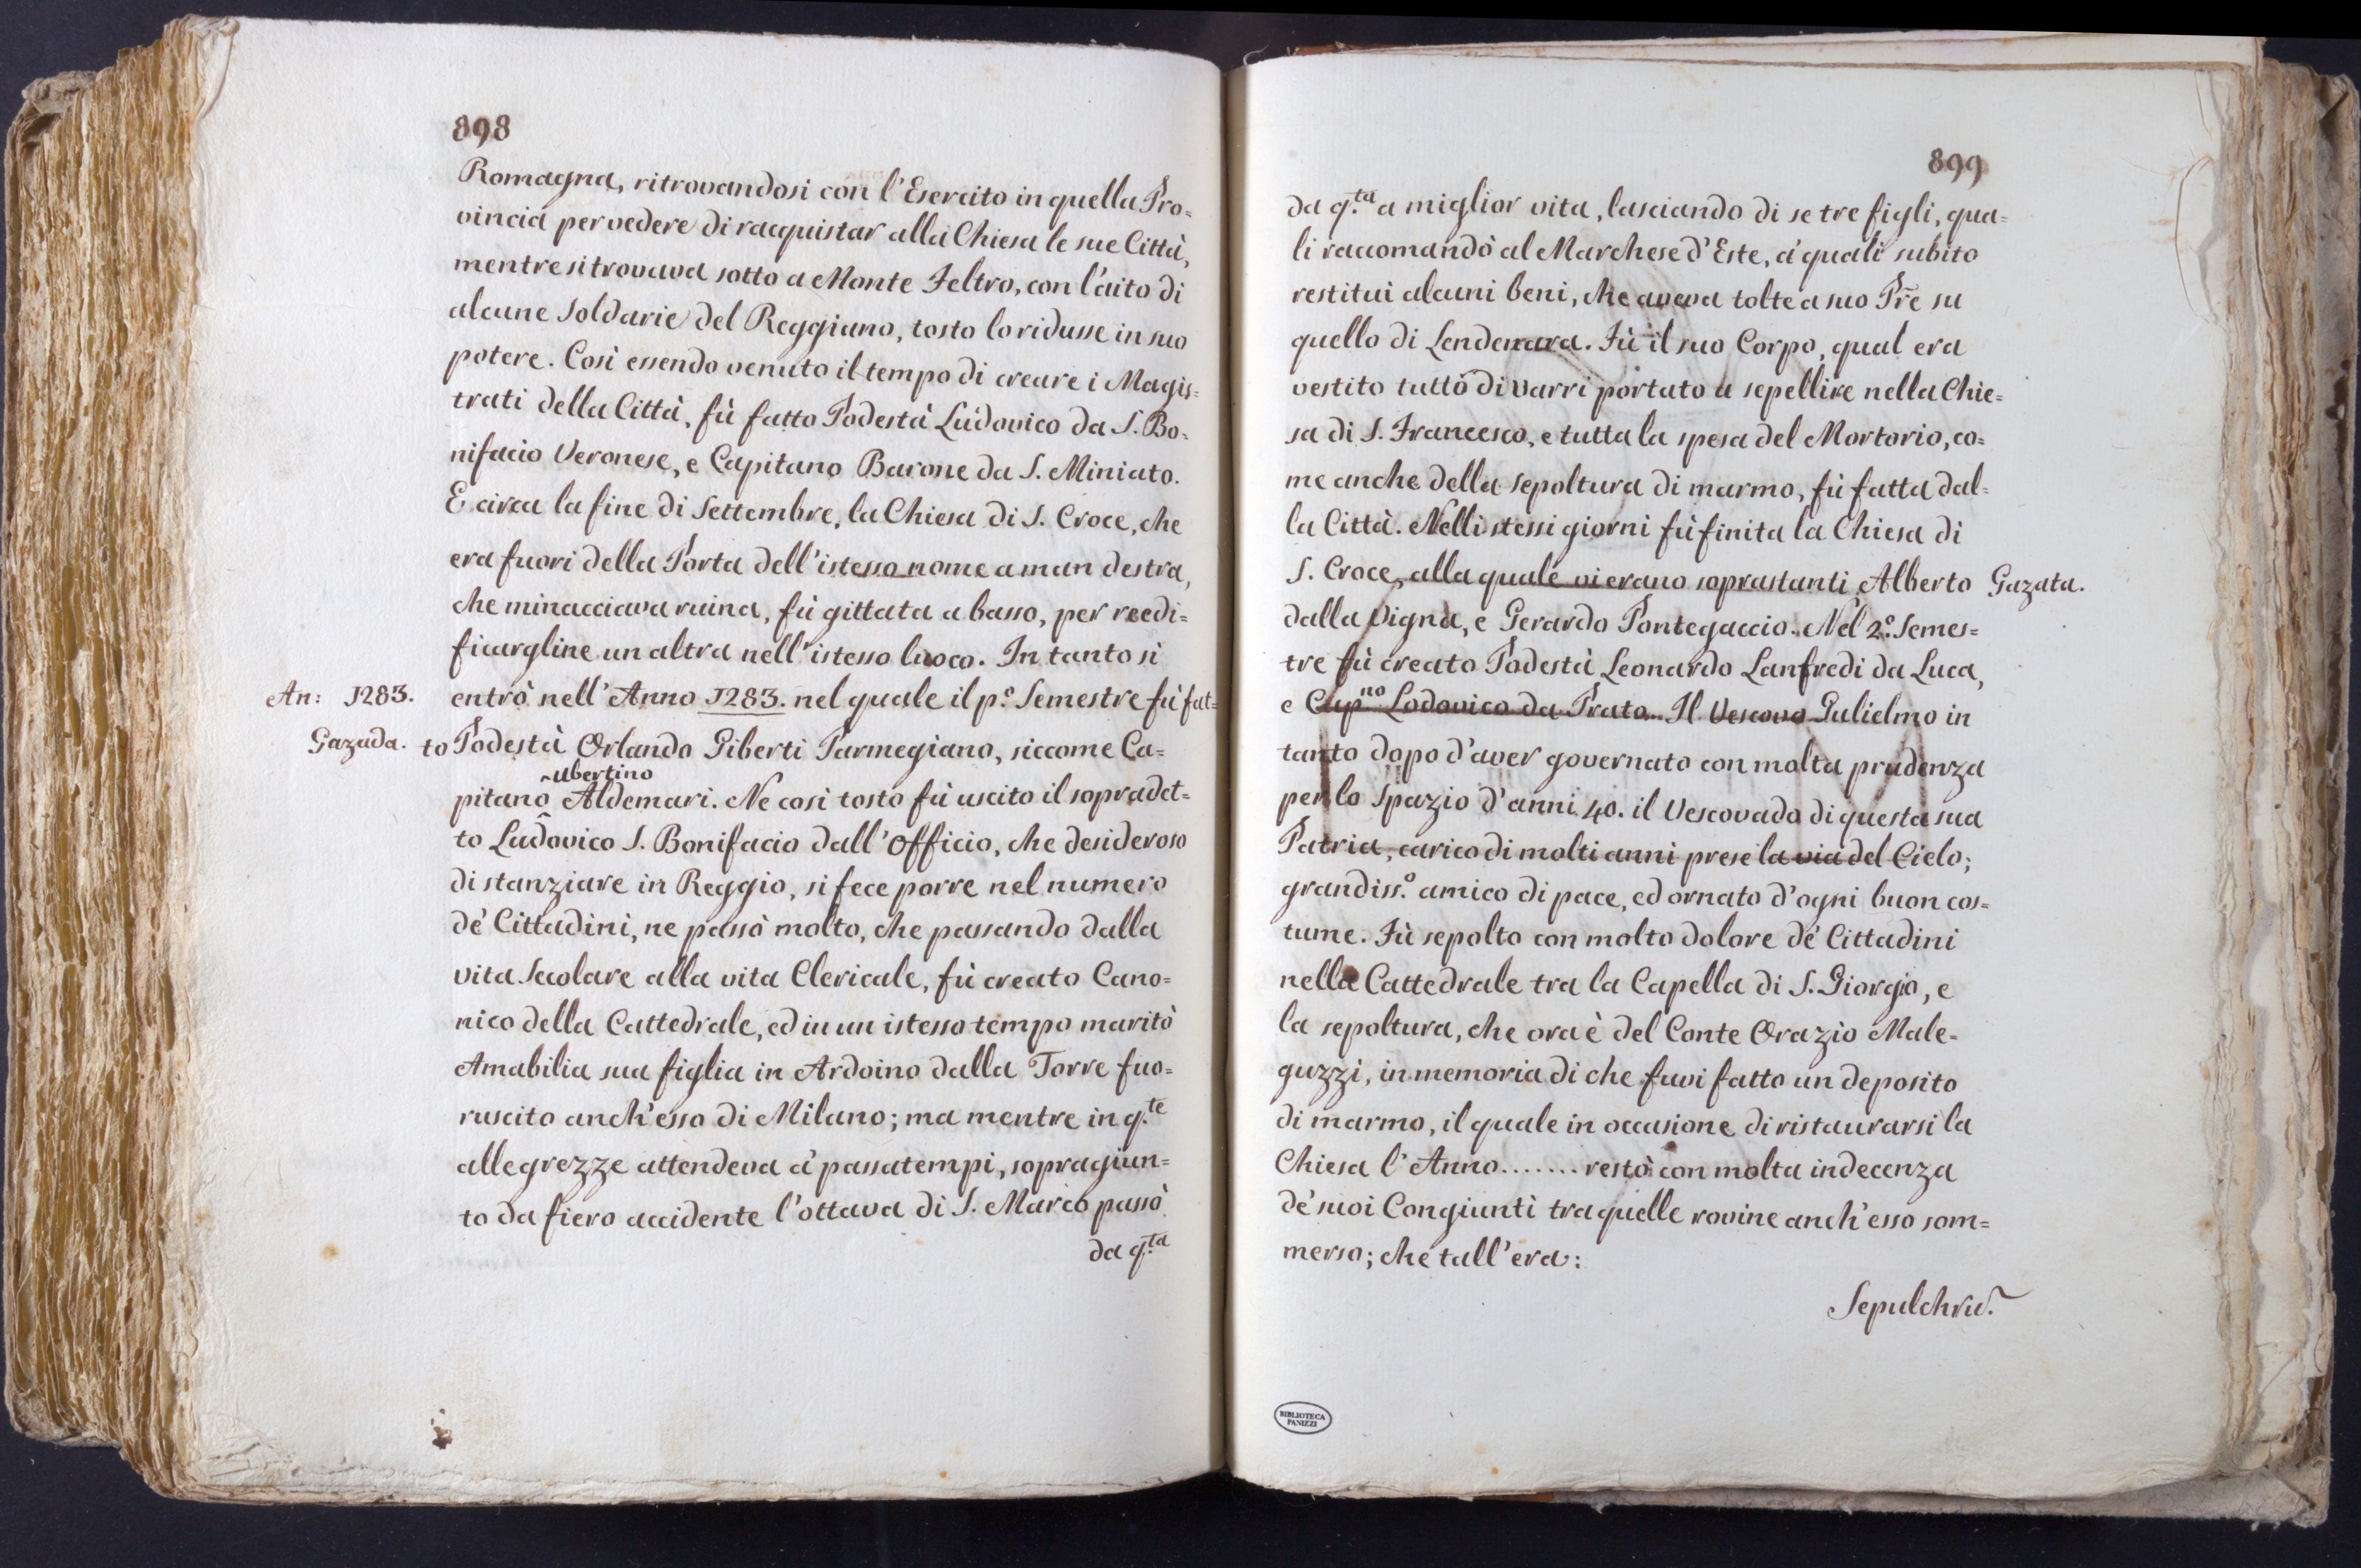 898
Romagna, ritrovandosi con l'Esercito in quella Pro=
vincia per vedere di racquistar alla Chiesa le sue Città,
mentre si trovava sotto a Monte Feltro, con l'aito di
alcune Soldarie del Reggiano, tosto lo ridusse in suo
potere. Così essendo venuto il tempo di creare i Magis=
trati della Città, fù fatto Podestà Ludovico da S. Bo=
nifacio Veronese, e Capitano Barone da S. Miniato.
E circa la fine di Settembre, la Chiesa di S. Croce, che
era fuori della Porta dell'istesso nome a man destra,
che minacciava ruina, fù gittata a basso, per reedi=
ficargline un altra nell'istesso luoco. In tanto si
An: 1283. entrò nell'Anno 1283. nel quale il p.º Semestre fù fat=
Gazada. to Podestà Orlando Giberti Parmegiano, siccome Ca=
Ubertino
pitano ^ Aldemari. Ne così tosto fù uscito il sopradet=
to Ludovico S. Bonifacio dall'Officio, che desideroso
di stanziare in Reggio, si fece porre nel numero
de' Cittadini, ne passò molto, che passando dalla
vita Secolare alla vita Clericale, fù creato Cano=
nico della Cattedrale, ed in un istesso tempo maritò
Amabilia sua figlia in Ardoino dalla Torre fuo=
ruscito anch'esso di Milano; ma mentre in q.te
allegrezze attendeva a' passatempi, sopragiun=
to da fiero accidente l'ottava di S. Marco passò
da q.ta
899
da q.ta a miglior vita, lasciando di se tre figli, qua=
li raccomandò al Marchese d'Este, a' quali subito
restitui alcuni beni, che aveva tolte a suo Pr̃e su
quello di Lendenara. Fù il suo Corpo, qual era
vestito tutto di varri portato a sepellire nella Chie=
sa di S. Francesco, e tutta la spesa del Mortorio, co=
me anche della sepoltura di marmo, fù fatta dal=
la Città. Nelli stessi giorni fù finita la Chiesa di
S. Croce, alla quale vi erano soprastanti Alberto Gazata.
dalla Vigna, e Gerardo Pontegaccio. Nel 2.º Semes=
tre fù creato Podestà Leonardo Lanfredi da Luca,
e Cap.no Lodovico da Prato. Il Vescovo Gulielmo in
tanto dopo d'aver governato con molta prudenza
per lo Spazio d'anni 40. il Vescovado di questa sua
Patria, carico di molti anni prese la via del Cielo;
grandiss.º amico di pace, ed ornato d'ogni buon cos=
tume. Fù sepolto con molto dolore de' Cittadini
nella Cattedrale tra la Capella di S. Giorgio, e
la sepoltura, che ora è del Conte Orazio Male=
guzzi, in memoria di che fuvi fatto un deposito
di marmo, il quale in occasione di ristaurarsi la
Chiesa l'Anno....... restò con molta indecenza
de' suoi Congiunti tra quelle rovine anch'esso som=
merso; che tall'era:
Sepulchru.~
BIBLIOTECA
PANIZZI